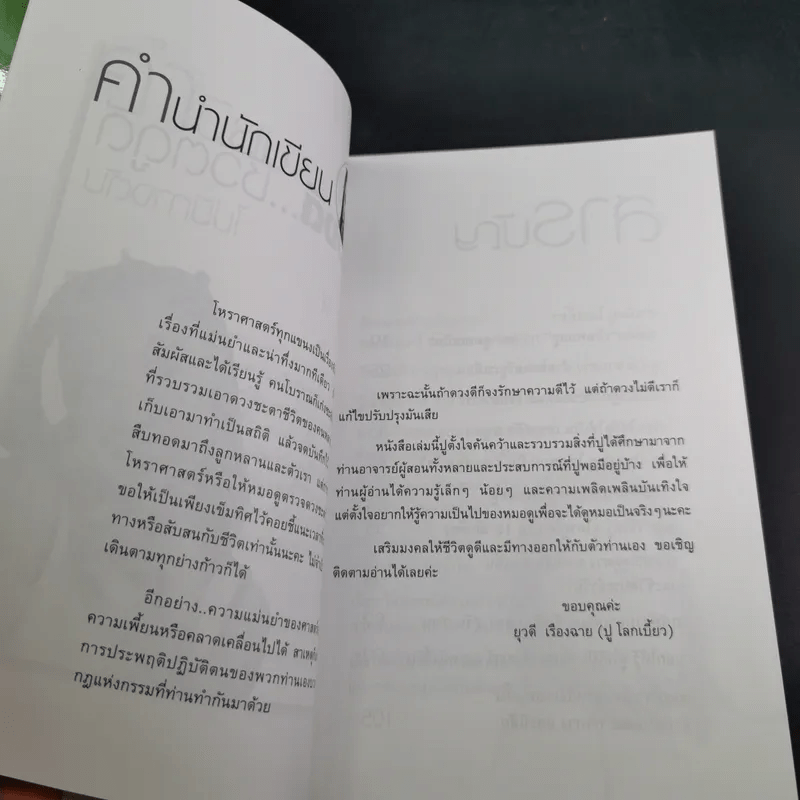 คำนำนักเขียน
โหราศาสตร์ทุกแขนงเป็นเรื่อง
เรื่องที่แม่นยำและน่าทึ่งมากทีเดียว
สัมผัสและได้เรียนรู้ คนโบราณก็เก่ง
ที่รวบรวมเอาดวงชะตาชีวิตของ
เก็บเอามาทำเป็นสถิติ แล้วจดบันทึก
สืบทอดมาถึงลูกหลานและตัวเรา
โหราศาสตร์หรือให้หมอดูตรวจดวงชะตา
ขอให้เป็นเพียงเข็มทิศไว้คอยชี้แนะเวลา
ทางหรือสับสนกับชีวิตเท่านั้นนะคะ
เดินตามทุกย่างก้าวก็ได้
อีกอย่าง..ความแม่นยำของศาสตร์
ความเพี้ยนหรือคลาดเคลื่อนไปได้ สาเหตุ
การประพฤติปฏิบัติตนของพวกท่านเอง
กฎแห่งกรรมที่ท่านทำกันมาด้วย
เพราะฉะนั้นถ้าดวงดีก็จงรักษาความดีไว้ แต่ถ้าดวงไม่ดีเราก็
แก้ไขปรับปรุงมันเสีย
หนังสือเล่มนี้ปูตั้งใจค้นคว้าและรวบรวมสิ่งที่ปูได้ศึกษามาจาก
ท่านอาจารย์ผู้สอนทั้งหลายและประสบการณ์ที่ปูพอมีอยู่บ้าง เพื่อให้
ท่านผู้อ่านได้ความรู้เล็กๆ น้อยๆ และความเพลิดเพลินบันเทิงใจ
แต่ตั้งใจอยากให้รู้ความเป็นไปของหมอดูเพื่อจะได้ดูหมอเป็นจริงๆนะคะ
เสริมมงคลให้ชีวิตดูดีและมีทางออกให้กับตัวท่านเอง ขอเชิญ
ติดตามอ่านได้เลยค่ะ
ขอบคุณค่ะ
ยุวดี เรืองฉาย (ปู โลกเบี้ยว)